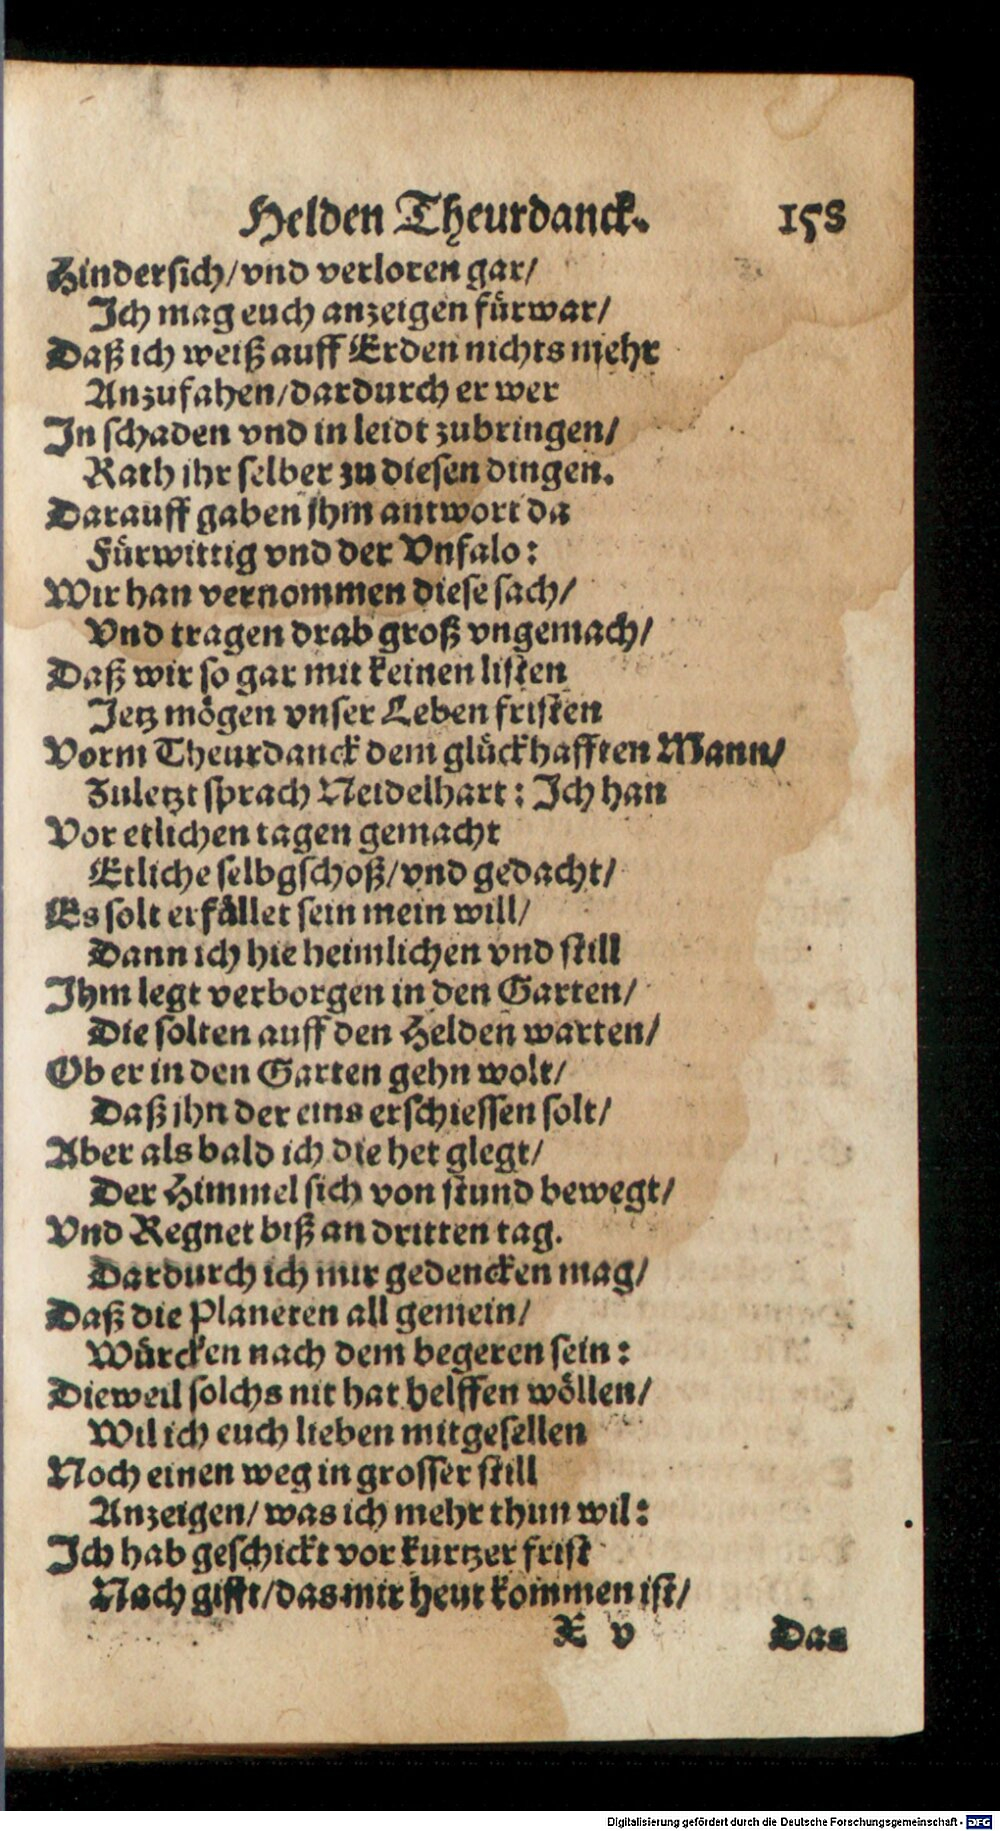 Helden Theurdanck. 158
Hindersich/vnd verloren gar/
Ich mag euch anzeigen fürwar/
Daß ich weiß auff Erden nichts mehr
Anzufahen/dardurch er wer
In schaden vnd in leidt zubringen/
Rath ihr selber zu diesen dingen.
Darauff gaben jhm antwort da
Fürwittig vnd der Vnfalo:
Wir han vernommen diese sach/
Vnd tragen drab groß vngemach/
Daß wir so gar mit keinen listen
Jetz mögen vnser Leben fristen
Vorm Theurdanck dem glückhafften Mann/
Zuletzt sprach Neidelhart: Ich han
Vor etlichen tagen gemacht
Etliche selbgschoß/vnd gedacht/
Es solt erfüllet sein mein will/
Dann ich hie heimlichen vnd still
Ihm legt verborgen in den Garten/
Die solten auff den Helden warten/
Ob er in den Garten gehn wolt/
Daß jhn der eins erschiessen solt/
Aber als bald ich die het glegt/
Der Himmel sich von stund bewegt/
Vnd Regnet biß an dritten tag.
Dardurch ich mir gedencken mag/
Daß die Planeten all gemein/
Würcken nach dem begeren sein:
Dieweil solchs nit hat helffen wöllen/
Wil ich euch lieben mitgesellen
Noch einen weg in grosser still
Anzeigen/ was ich mehr thun wil:
Ich hab geschickt vor kurtzer frist
Nach gifft/das mir heut kommen ist/
X v Das
Digitalisierung gefördert durch die Deutsche Forschungsgemeinschaft - DFG